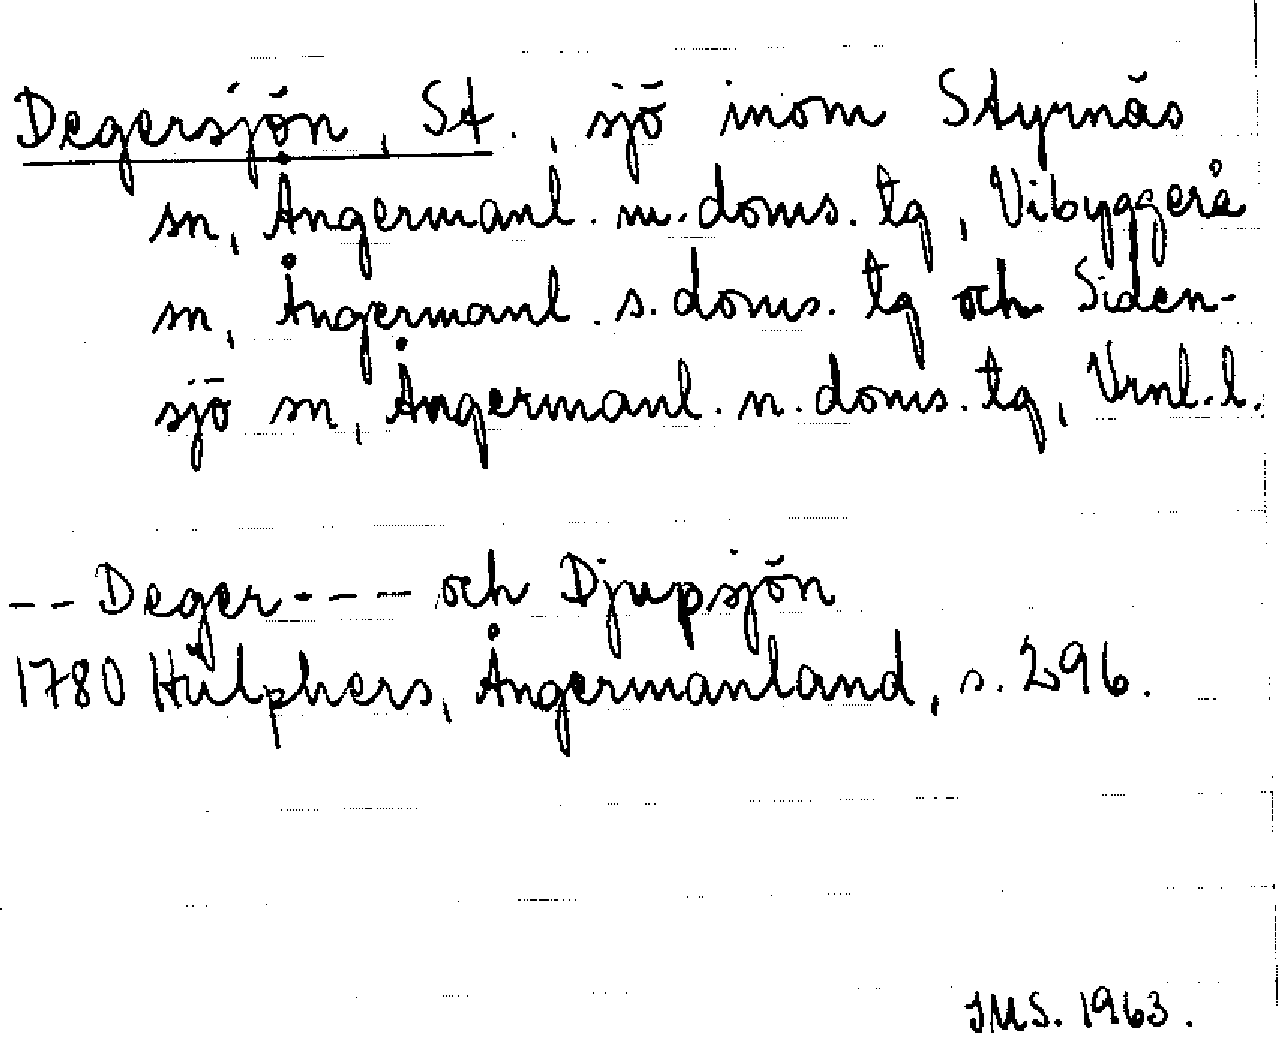 Degersjön, St., sjö inom Styrnäs
sn, Ångermanl. m. doms. tg, Vibyggerå
sn, Ångermanl. s. doms. tg och Siden-
sjö sn, Ångermanl. n. doms. tg, Vrnl. l.
-- Deger --- och Djupsjön
1780 Hülphers, Ångermanland, s. 296.
IMS. 1963.